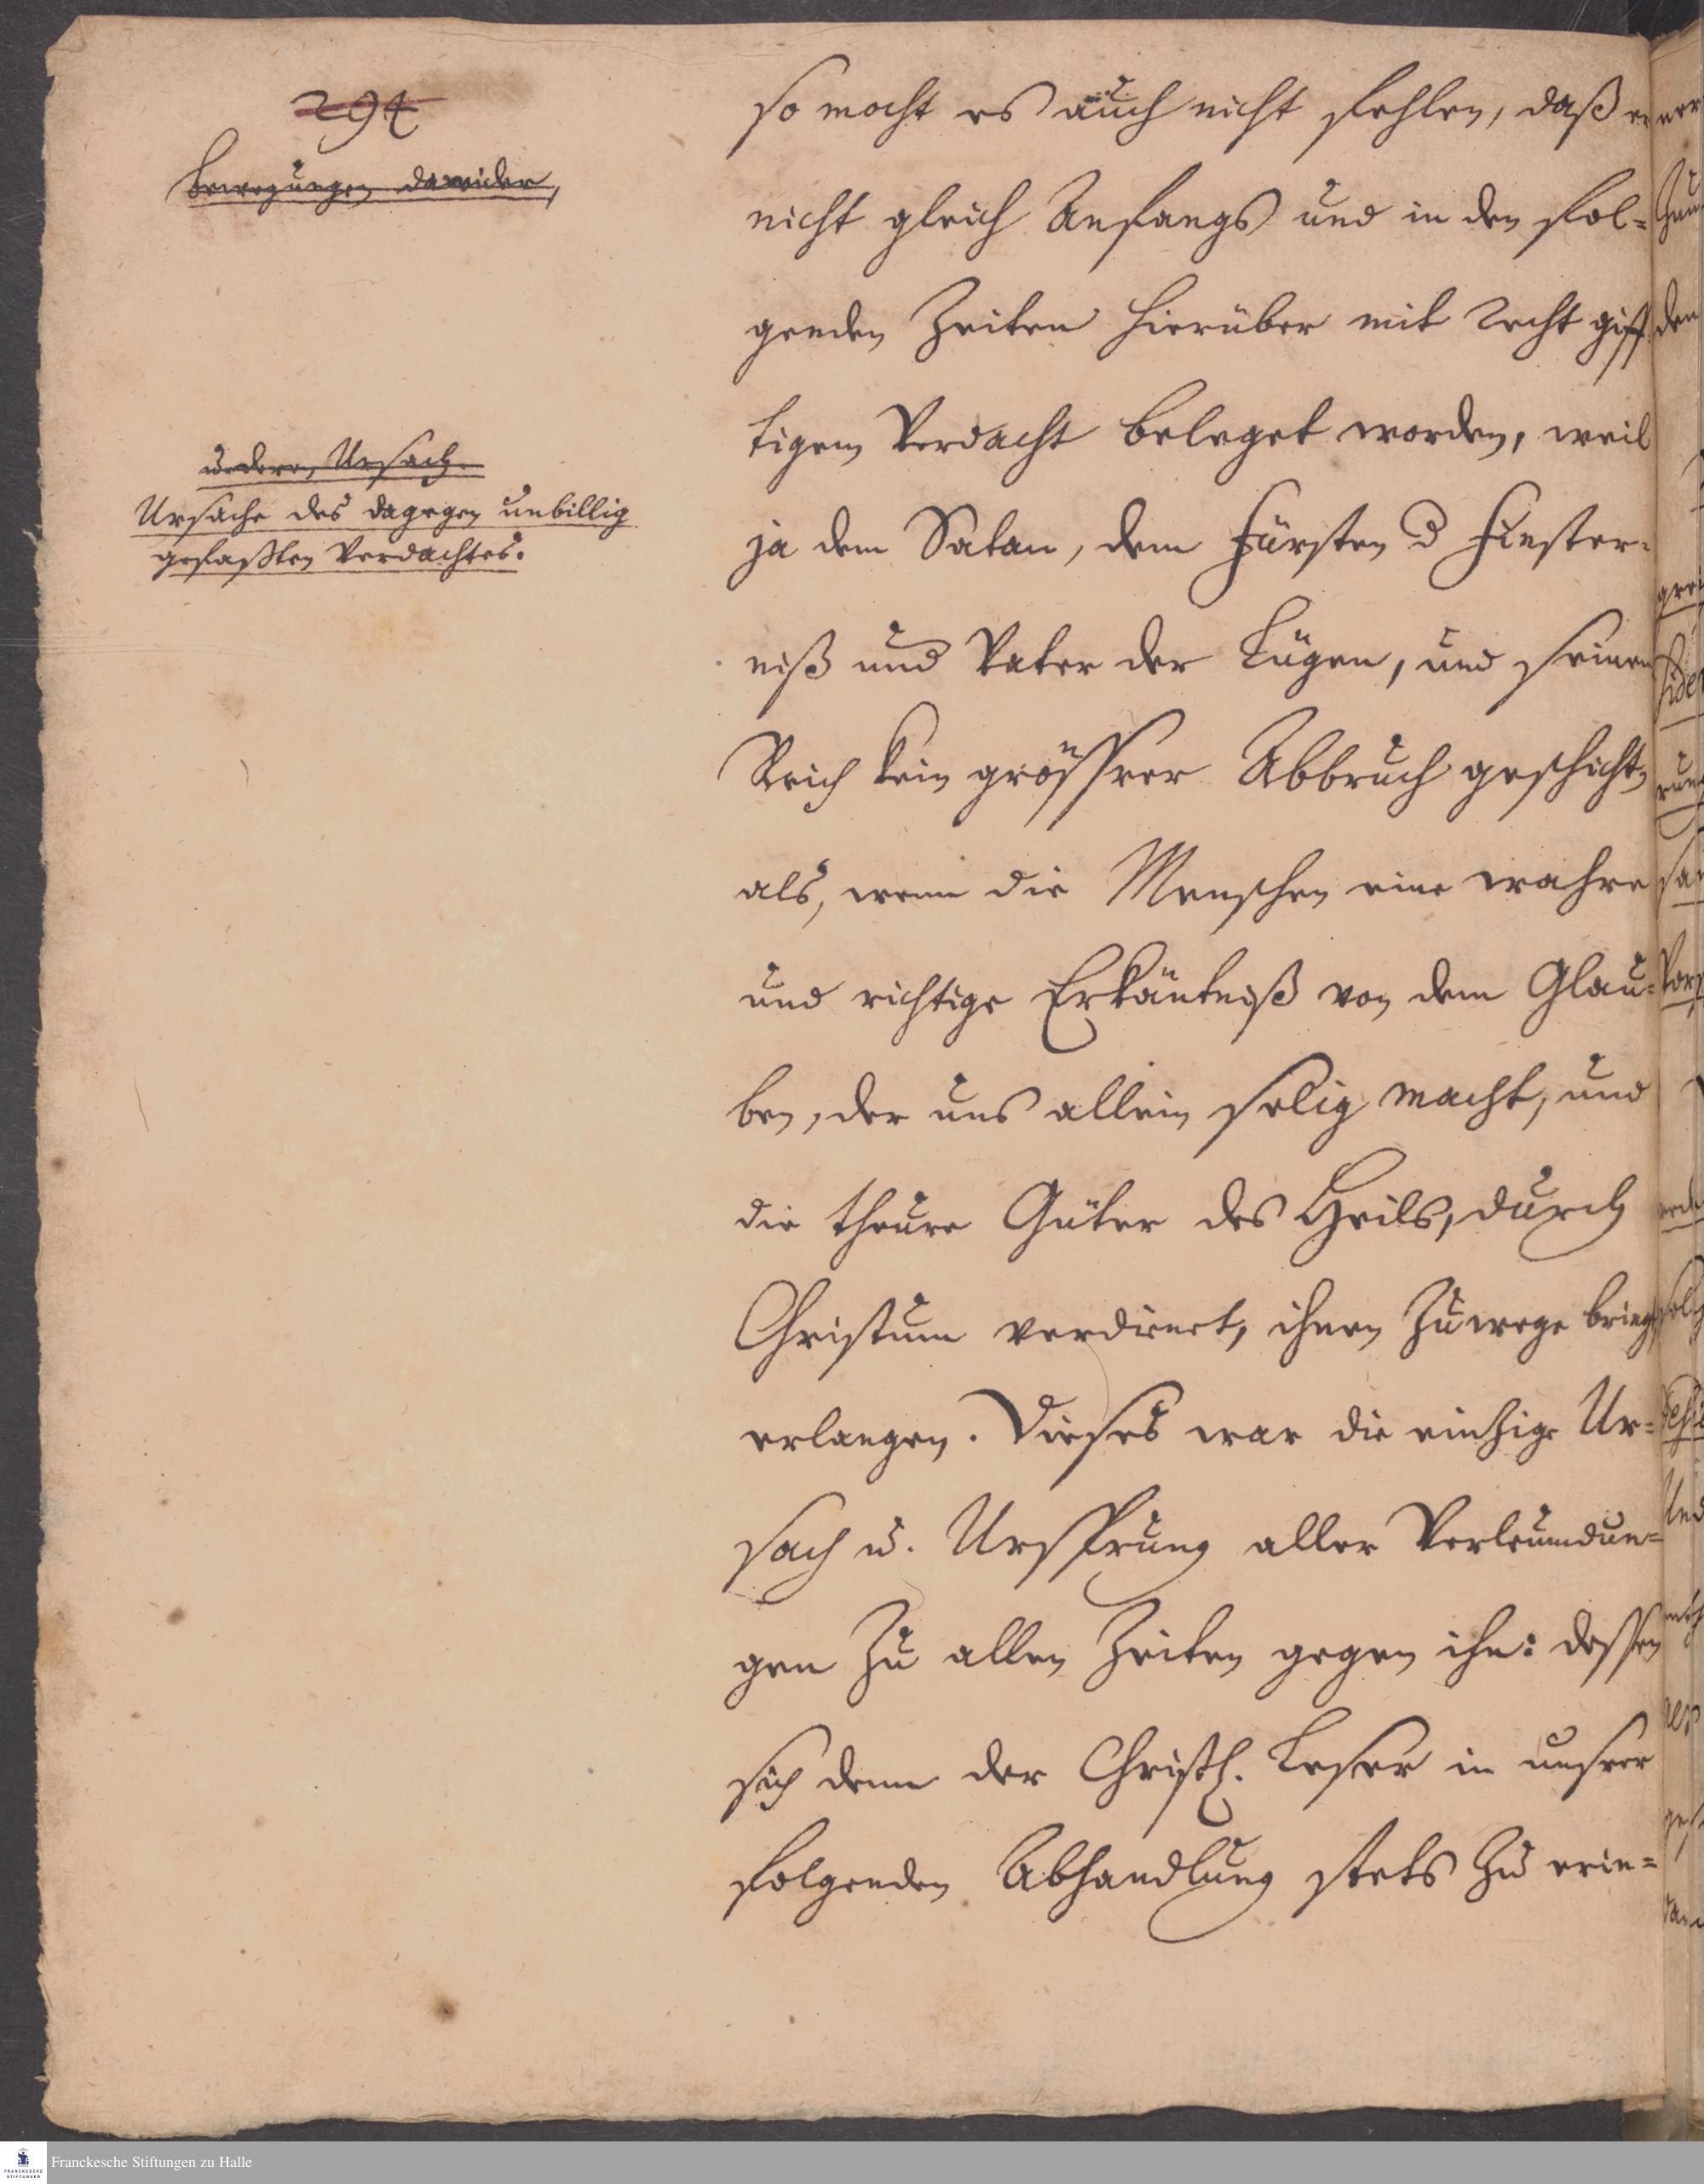 294
Bewegungen dawider,
u. deren Ursach.
Ursache des dagegen unbillig
gefaßten Verdachtes.
so mocht es auch nicht fehlen, daß er
nicht gleich Anfangs und in den fol=
genden Zeiten hierüber mit recht giff
tigem Verdacht beleget worden, weil
ja dem Satan, dem Fürsten d Finster=
niß und Vater der Lügen, und seinem
Reich kein grösserer Abbruch geschicht,
als, wenn die Menschen eine wahre
und richtige Erkäntniß von dem Glau=
ben, der uns allein selig macht, und
die theure Güter des Heils, durch
Christum verdienet, ihnen zuwege bringt,
erlangen. Dieses war die eintzige Ur=
sach u. Ursprung aller Verleumdun=
gen zu allen Zeiten gegen ihn: dessen
sich denn der Christl. Leser in unsrer
folgenden Abhandlung stets zu erin=
Franckesche Stiftungen zu Halle